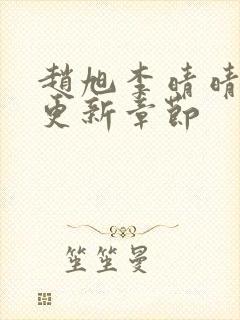 趙旭李晴晴
更新章節
笙笙曼